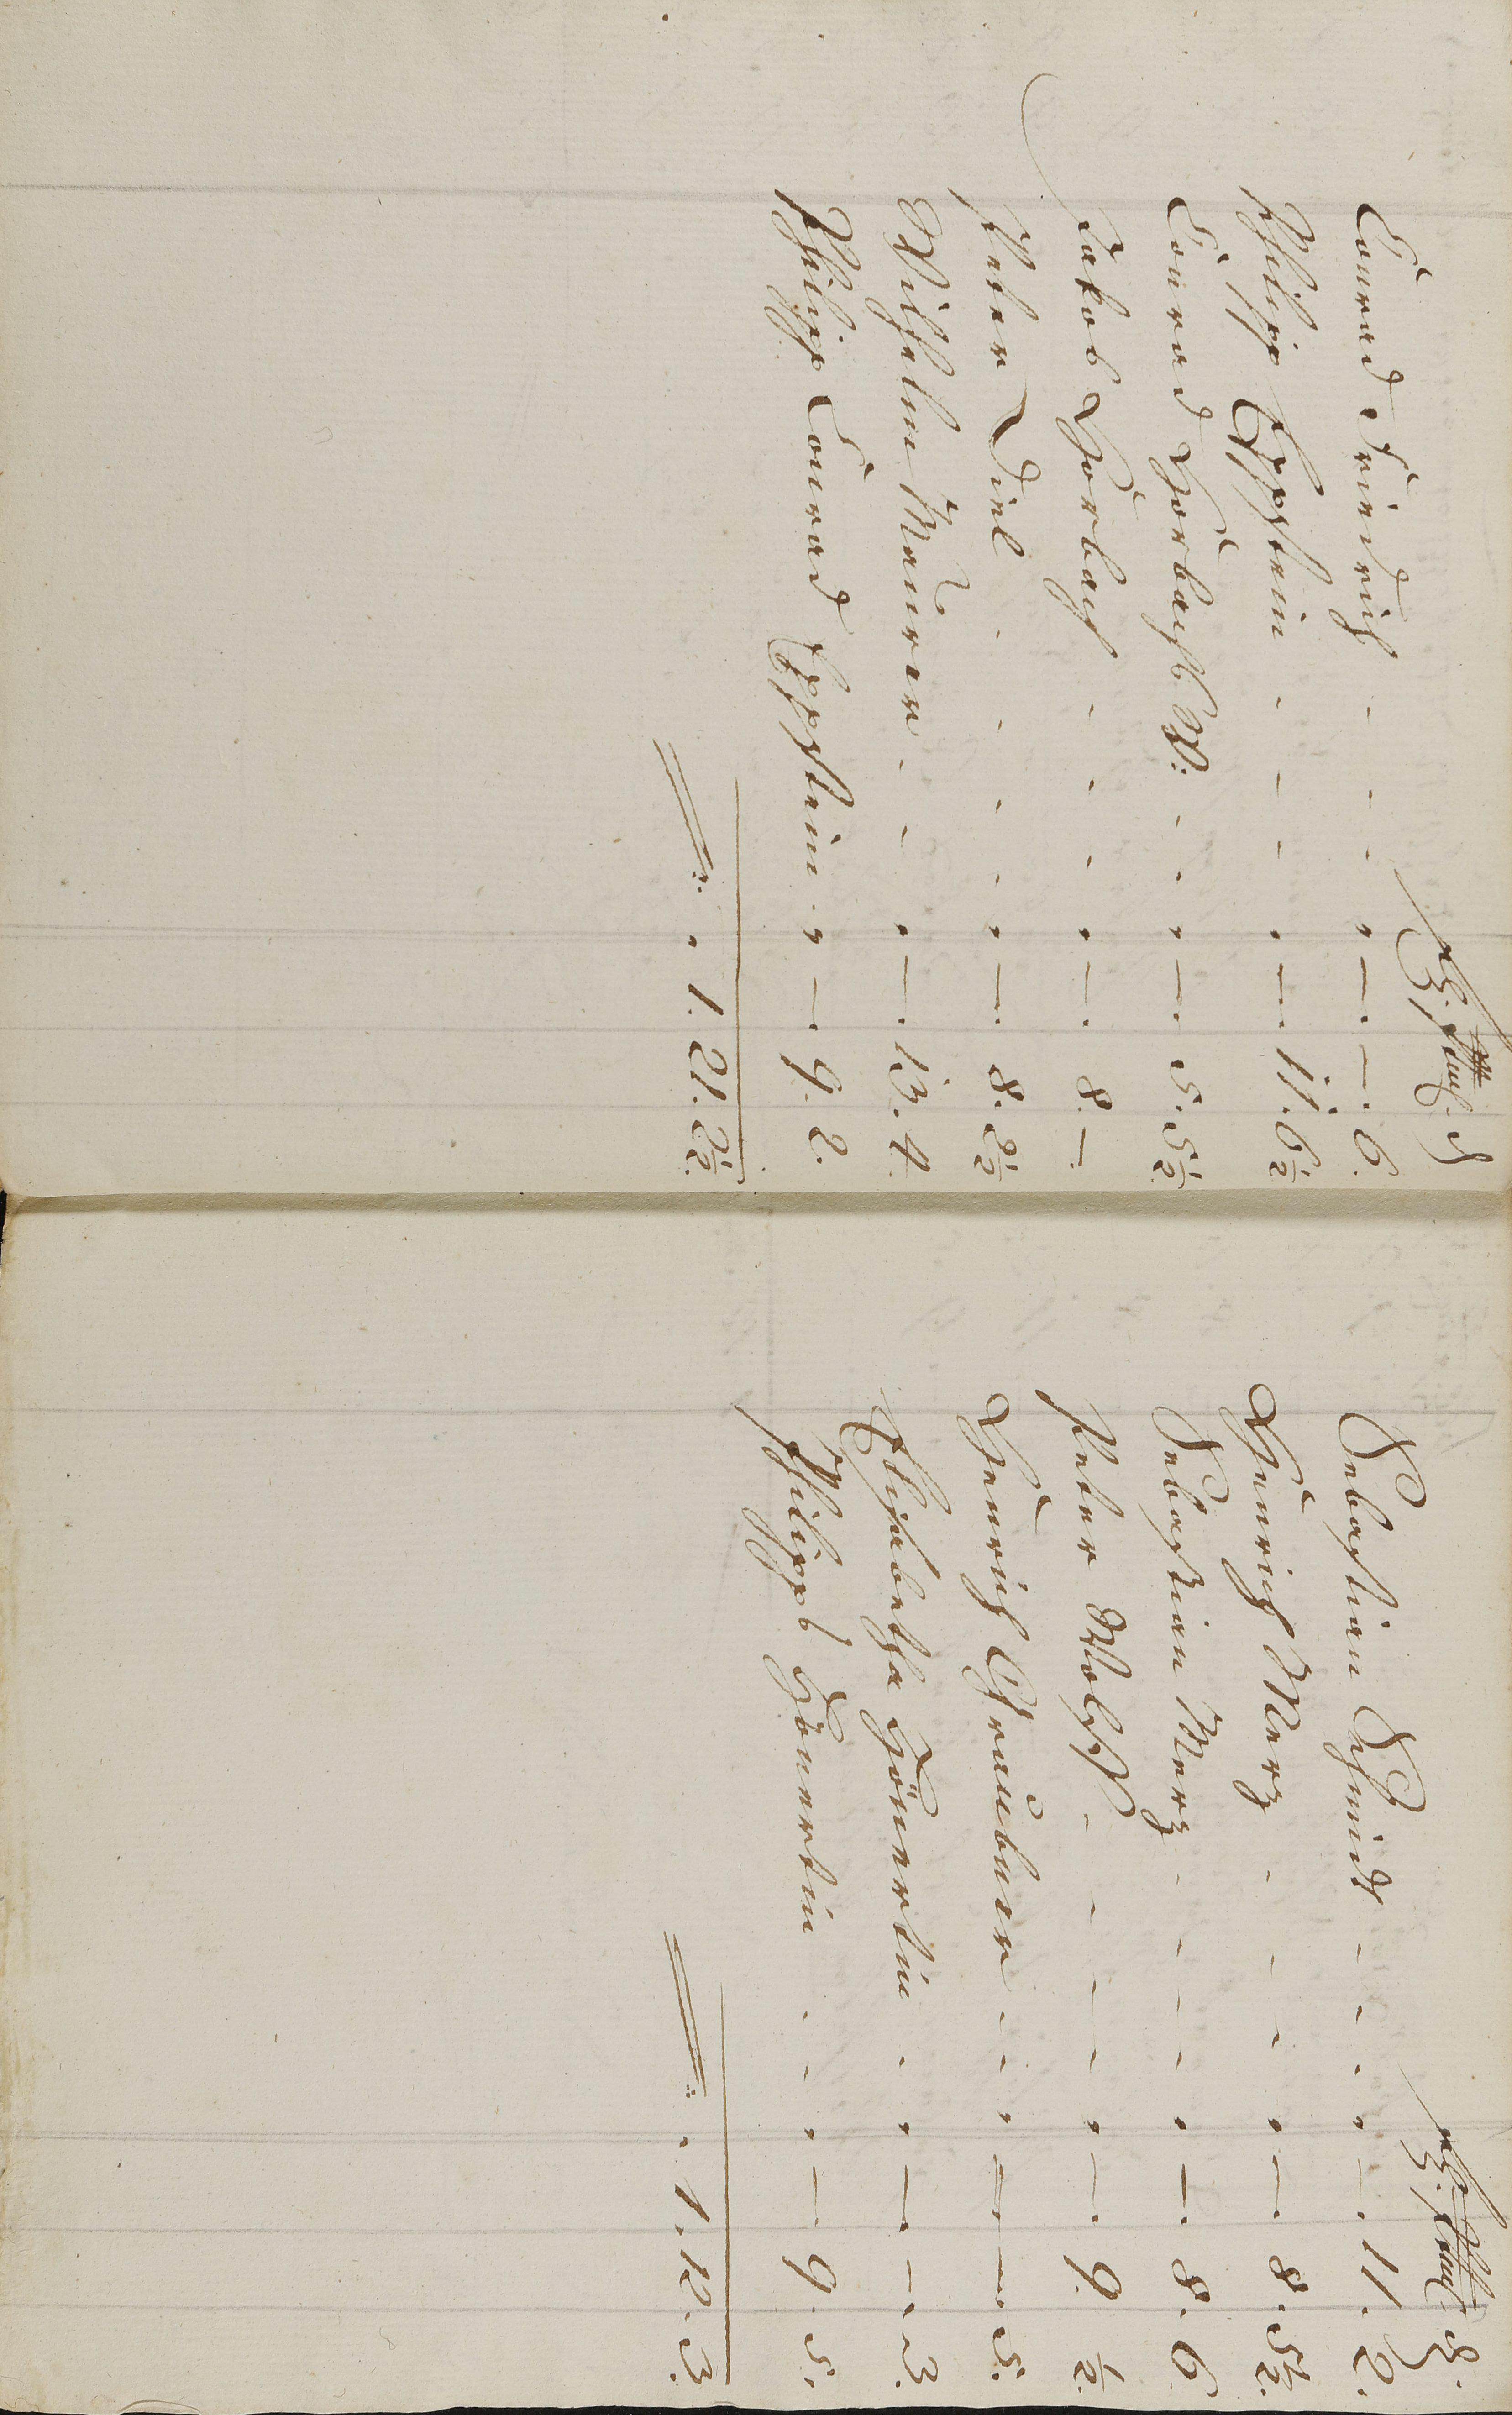 Conrad Friedrich - - - " —. —. 6.
Philipp Eppstein - - - " —. 11. 6½
Conrad Horbachs W: - - " —. 5. 5½.
Jakob Horbach - - - " —. 8. —.
Peter Diel - - - - " —. 8. 2½
Wilhelm Maurer - - " —. 13. 4.
Philipp Conrad Eppstein - " — 9. 2.
" 1. 21. 2½.
Sebastian Schmidt - - - - " —. 11. 2.
Henrich Merz - - - " —. 8. 5½.
Sebastian Merz - - - - " —. 8. 6.
Peter Wolff - - - - " —. 9. ½.
Henrich Graubner - - " — —. 5.
Elisabetha Hönertin - " —. —. 3.
Philipps Hönertin - - " — 9. 5.
" 1. 12. 3.